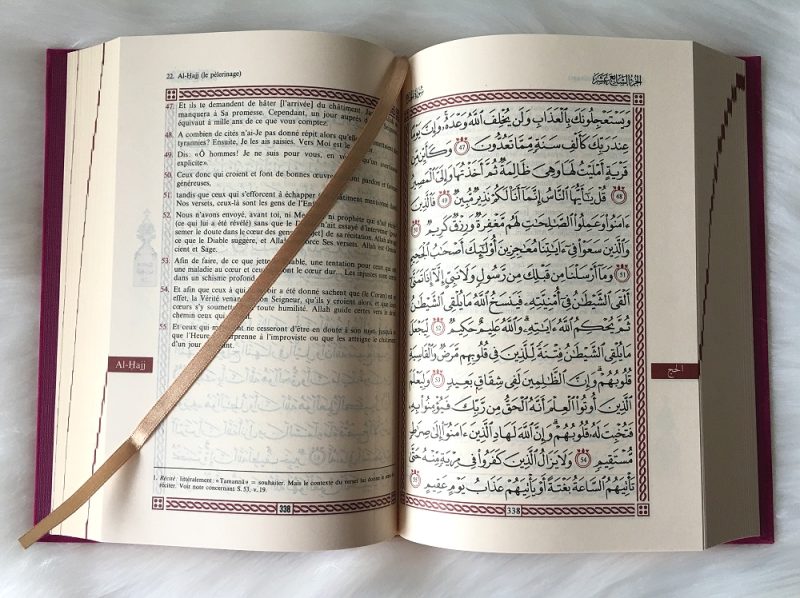 22. Al-Ḥajj (le pèlerinage)
47. Et ils te demandent de hâter [l'arrivée] du châtiment. Jamais
manquera à Sa promesse. Cependant, un jour auprès
équivaut à mille ans de ce que vous comptez.
48. A combien de cités n'ai-Je pas donné répit alors qu'elles
tyrannes? Ensuite, Je les ais saisies. Vers Moi est le
49. Dis: «Ô hommes! Je ne suis pour vous, en avertisseur
explicite».
50. Ceux donc qui croient et font de bonnes œuvres pardon et faveurs
généreuses,
51. tandis que ceux qui s'efforcent à échapper châtiment mentionné dans
Nos versets, ceux-là sont les gens de l'Enfer
52. Nous n'avons envoyé, avant toi, ni Messager prophète qui n'ait
(ce qui lui a été révélé) sans que le Diable n'ait essayé d'intervenir
semer le doute dans le cœur des gens sujet] de sa récitation. Allah
ce que le Diable suggère, et Allah renforce Ses versets. Allah est
cient et Sage.
53. Afin de faire, de ce que jette le Diable, une tentation pour ceux qui ont
une maladie au cœur et ceux qui ont le cœur dur... Les injustes sont
dans un schisme profond
54. Et afin que ceux à qui le savoir a été donné sachent que (le Coran) est en
effet, la Vérité venant de ton Seigneur, qu'ils y croient alors, et que leurs
cœurs s'y soumettent en toute humilité. Allah guide certes vers le
chemin ceux qui
55. Et ceux qui mécroient ne cesseront d'être en doute à son sujet, jusqu'à
que l'Heure les surprenne à l'improviste ou que les atteigne le châtiment
d'un jour
Al-Ḥajj
1. Récité: littéralement: «Tamannā» = souhaiter. Mais le contexte du verset lui donne le sens
réciter. Voir note concernant S. 53, v. 19.
338
الجزء السابع عشر
وَيَسْتَعْجِلُونَكَ بِالْعَذَابِ وَلَن يُخْلِفَ اللَّهُ وَعْدَهُ وَإِنَّ يَوْمًا
عِندَ رَبِّكَ كَأَلْفِ سَنَةٍ مِّمَّا تَعُدُّونَ ٤٧ وَكَأَيِّن مِّن
قَرْيَةٍ أَمْلَيْتُ لَهَا وَهِيَ ظَالِمَةٌ ثُمَّ أَخَذْتُهَا وَإِلَيَّ الْمَصِيرُ
٤٨ قُلْ يَٰأَيُّهَا النَّاسُ إِنَّمَا أَنَا لَكُمْ نَذِيرٌ مُّبِينٌ ٤٩ فَالَّذِينَ
ءَامَنُوا وَعَمِلُوا الصَّٰلِحَٰتِ لَهُم مَّغْفِرَةٌ وَرِزْقٌ كَرِيمٌ ٥٠
وَالَّذِينَ سَعَوْا فِي ءَايَٰتِنَا مُعَٰجِزِينَ أُولَٰئِكَ أَصْحَٰبُ الْجَحِيمِ
٥١ وَمَا أَرْسَلْنَا مِن قَبْلِكَ مِن رَّسُولٍ وَلَا نَبِيٍّ إِلَّا إِذَا تَمَنَّىٰ
أَلْقَى الشَّيْطَٰنُ فِي أُمْنِيَّتِهِ فَيَنسَخُ اللَّهُ مَا يُلْقِي الشَّيْطَٰنُ
ثُمَّ يُحْكِمُ اللَّهُ ءَايَٰتِهِ وَاللَّهُ عَلِيمٌ حَكِيمٌ ٥٢ لِّيَجْعَلَ
مَا يُلْقِي الشَّيْطَٰنُ فِتْنَةً لِّلَّذِينَ فِي قُلُوبِهِم مَّرَضٌ وَالْقَاسِيَةِ
قُلُوبُهُمْ وَإِنَّ الظَّٰلِمِينَ لَفِي شِقَاقٍ بَعِيدٍ ٥٣ وَلِيَعْلَمَ
الَّذِينَ أُوتُوا الْعِلْمَ أَنَّهُ الْحَقُّ مِن رَّبِّكَ فَيُؤْمِنُوا بِهِ
فَتُخْبِتَ لَهُ قُلُوبُهُمْ وَإِنَّ اللَّهَ لَهَادِ الَّذِينَ ءَامَنُوا إِلَىٰ صِرَٰطٍ
مُّسْتَقِيمٍ ٥٤ وَلَا يَزَالُ الَّذِينَ كَفَرُوا فِي مِرْيَةٍ مِّنْهُ حَتَّىٰ
تَأْتِيَهُمُ السَّاعَةُ بَغْتَةً أَوْ يَأْتِيَهُمْ عَذَابُ يَوْمٍ عَقِيمٍ ٥٥
الحج
338